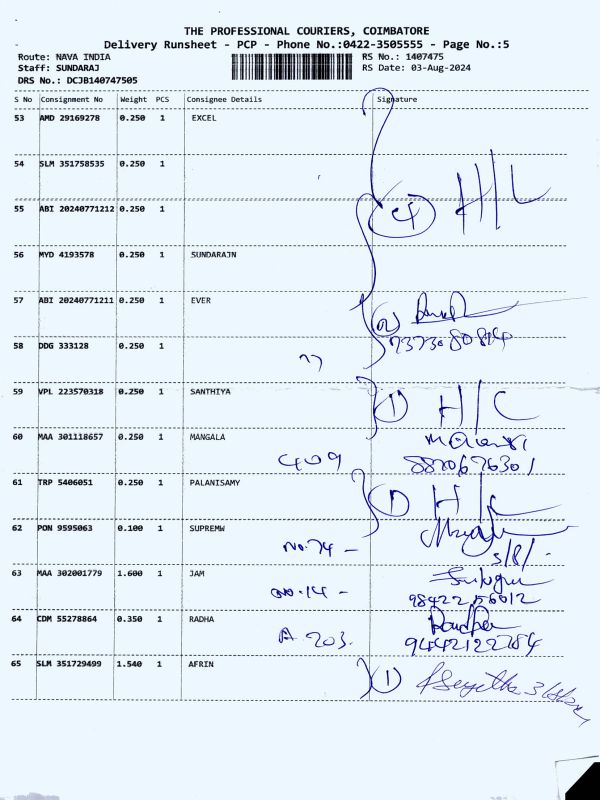 THE PROFESSIONAL COURIERS, COIMBATORE
Delivery Runsheet - PCP - Phone No.:0422-3505555 - Page No.:5
Route: NAVA INDIA RS No.: 1407475
Staff: SUNDARAJ RS Date: 03-Aug-2024
DRS No.: DCJB140747505
S No Consignment No Weight PCS Consignee Details Signature
53 AMD 29169278 0.250 1 EXCEL
54 SLM 351758535 0.250 1
H/L
55 ABI 20240771212 0.250 1
4
56 MYD 4193578 0.250 1 SUNDARAJN
57 ABI 20240771211 0.250 1 EVER
2
58 DDG 333128 0.250 1
59 VPL 223570318 0.250 1 SANTHIYA
1 H/C
60 MAA 301118657 0.250 1 MANGALA
409
61 TRP 5406051 0.250 1 PALANISAMY
1
62 PON 9595063 0.100 1 SUPREMW
No. 74 - 3/8/-
63 MAA 302001779 1.600 1 JAM
No. 14 - 98422 56012
64 CDM 55278864 0.350 1 RADHA
A 203. 9442122784
65 SLM 351729499 1.540 1 AFRIN
1